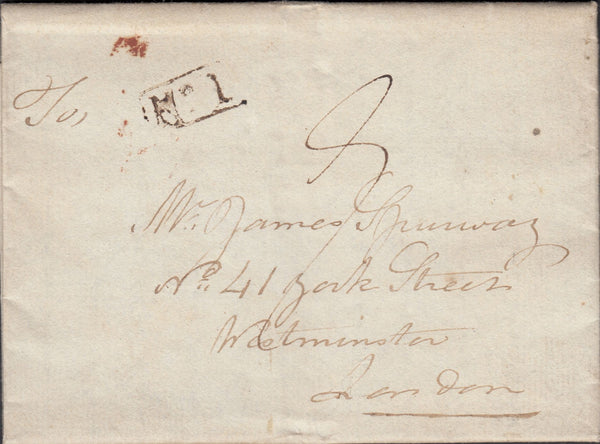 To,
No. 1
Mr. James Spurway
No. 41 York Street
Westminster
London